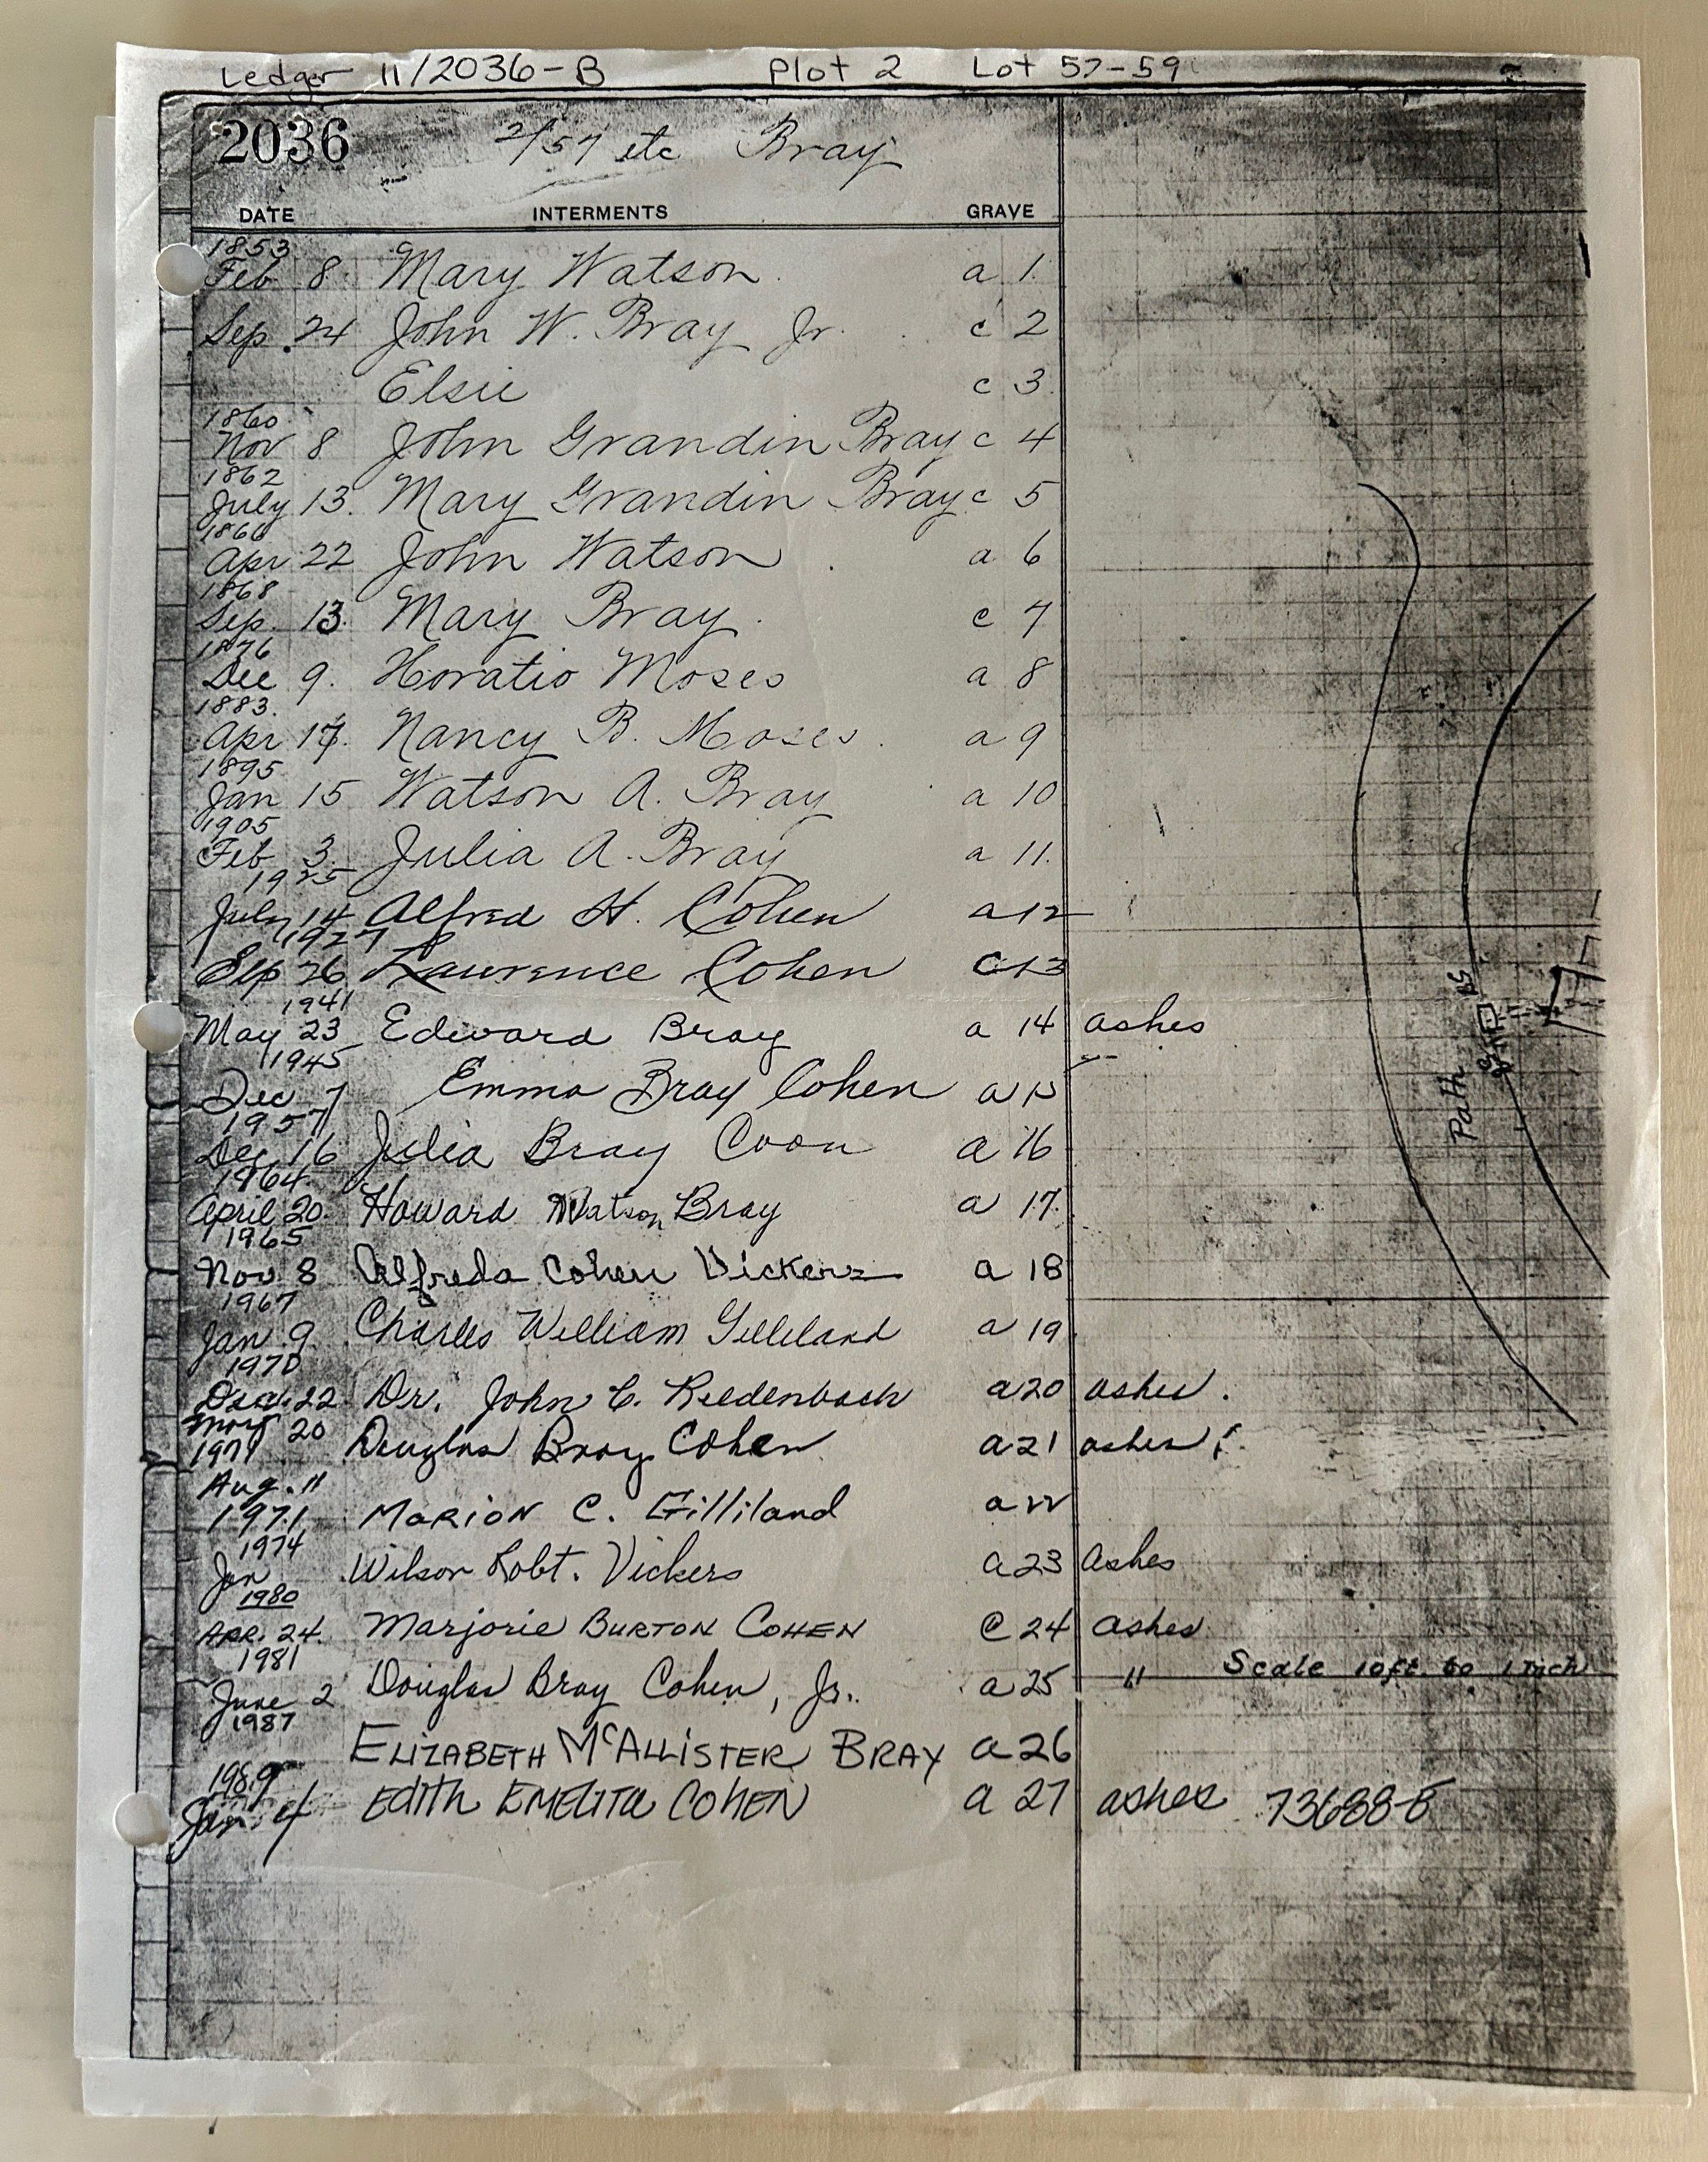 Ledger 11/2036-B Plot 2 Lot 57-59
2036 2/57 etc Bray
DATE INTERMENTS GRAVE
1853
Feb 8 Mary Watson a 1
Sep. 24 John W. Bray Jr. c 2
Elsie c 3
1860
Nov 8 John Grandin Bray c 4
1862
July 13. Mary Grandin Bray c 5
1866
Apr 22 John Watson a 6
1868
Sep. 13 Mary Bray c 7
1876
Dec 9. Horatio Moses a 8
1883.
Apr 17. Nancy B. Moses. a 9
1895
Jan 15 Watson A. Bray a 10
1905
Feb 3 Julia A. Bray a 11.
1925
July 14 Alfred H. Cohen a 12
1927
Sep 26 Lawrence Cohen c 13
1941
May 23 Edward Bray a 14 ashes
1945
Dec 7 Emma Bray Cohen a 15
1957
Dec 16 Julia Bray Coon a 16
1964
April 20. Howard Watson Bray a 17.
1965
Nov. 8 Alfreda Cohen Vickers a 18
1967
Jan 9 Charles William Gilliland a 19
1970
22 Dr. John C. a 20 ashes.
20
1971 Douglas Bray Cohen a 21 ashes
Aug. 11
1971 Marion C. Gilliland a 22
1974
Jan Wilson Robt. Vickers a 23 Ashes
1980
APR. 24. Marjorie BURTON COHEN 24 ashes
1981
June 2 Douglas Bray Cohen, Jr. a 25 "
1987
ELIZABETH McALLISTER BRAY a 26
1989
Jan. 4 Edith EMELITA COHEN a 27 ashes 73688-B
Path
Scale 10ft. to 1 Inch